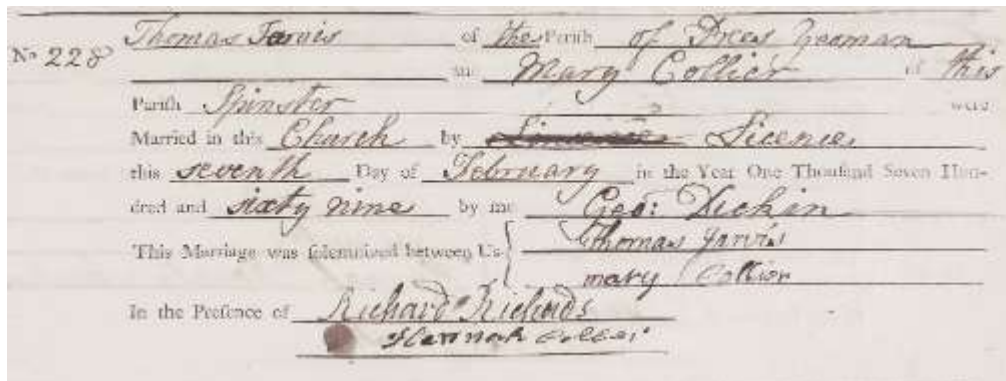 No 228 Thomas Jarvis of the Parish of Drees Yeoman
and Mary Collier of this
Parish Spinster were
Married in this Church by Licence
this seventh Day of February in the Year One Thousand Seven Hun-
dred and sixty nine by me Geo: Dickin
This Marriage was solemnized between Us Thomas Jarvis
mary Collier
In the Presence of Richard Richards
Hannah Collier